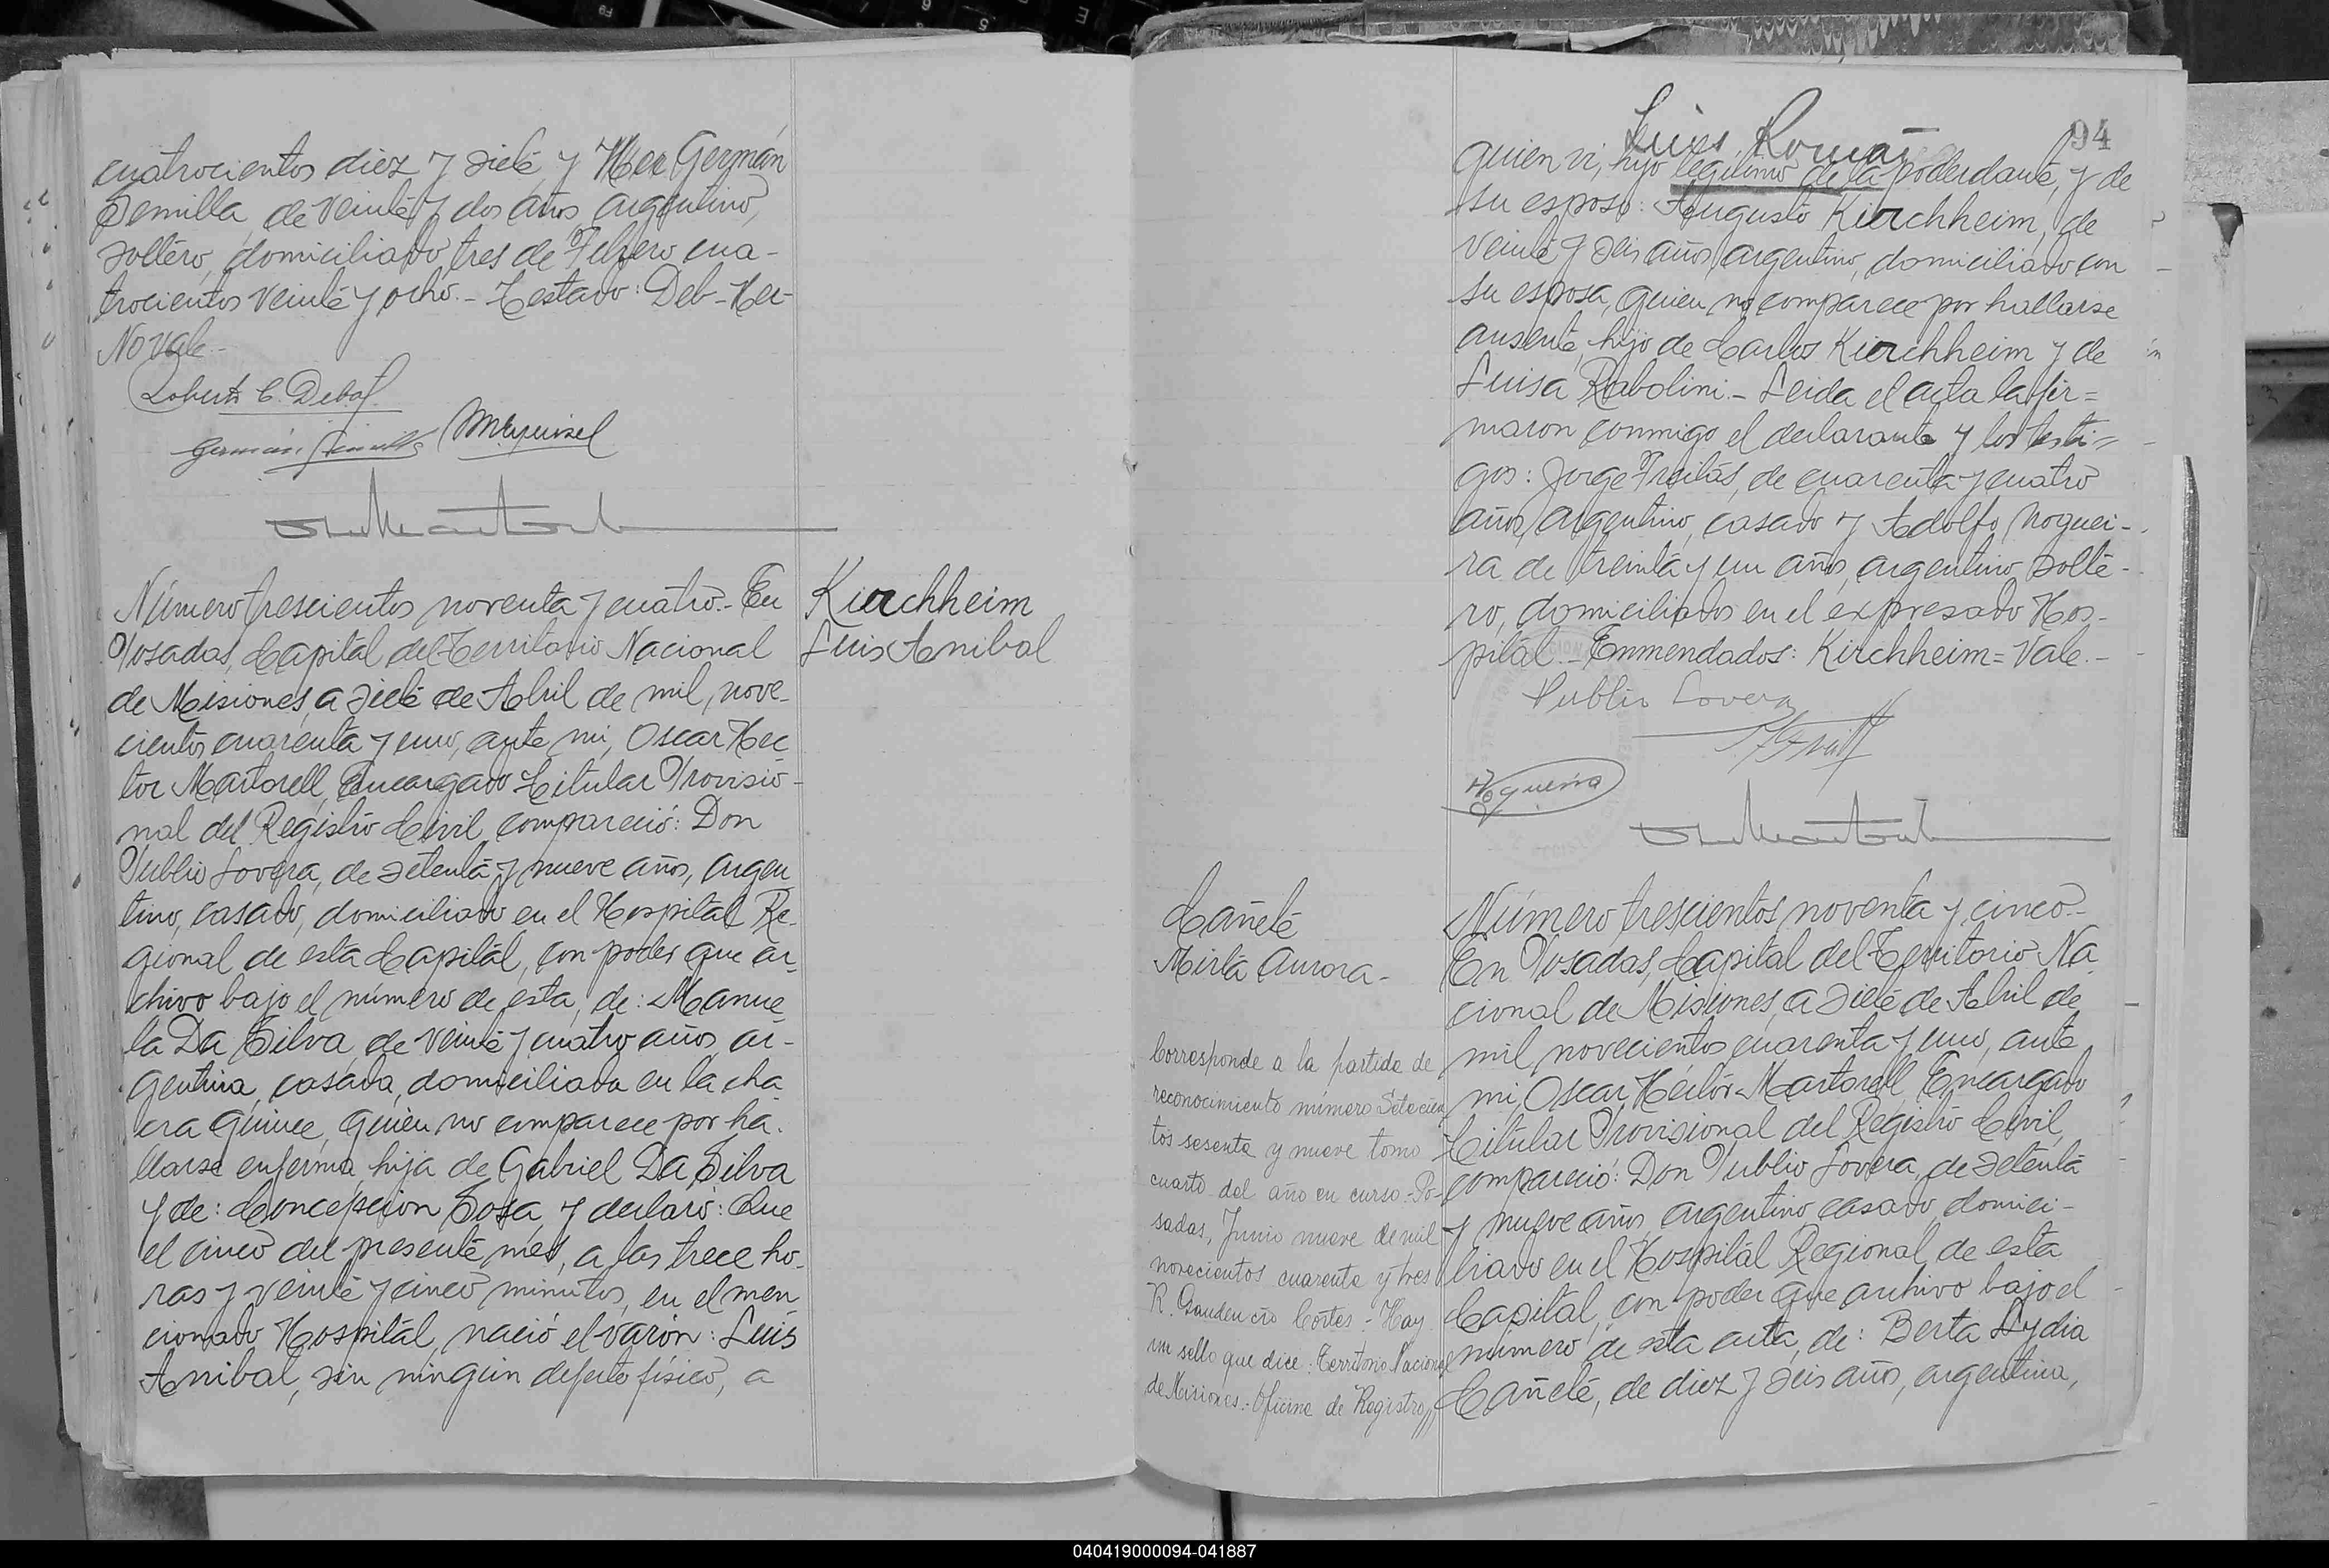 cuatrocientos diez y siete, y Her Germán
Semilla, de veinte y dos años, argentino,
soltero, domiciliado tres de Febrero cua-
trocientos veinte y ocho.- Testado: Deb-Her-
No vale.-
Roberto C. Debat
Germán Semilla
Número trescientos noventa y cuatro.- En
Posadas, Capital del Territorio Nacional
de Misiones, a siete de Abril de mil, nove-
cientos cuarenta y uno, ante mi, Oscar Hec
tor Martorell, Encargado Titular Provisio-
nal del Registro Civil, compareció: Don
Publio Lovera, de setenta y nueve años, argen
tino, casado, domiciliado en el Hospital Re-
gional de esta Capital, con poder que ar-
chivo bajo el número de esta, de: Manue
la Da Silva, de veinte y cuatro años, ar-
gentina, casada, domiciliada en la cha
cra quince, quien no comparece por ha-
llarse enferma, hija de Gabriel Da Silva
y de: Concepcion Sosa, y declaró: Que
el cinco del presente mes, a las trece ho-
ras y veinte y cinco minutos, en el men
cionado Hospital, nació el varón: Luis
Anibal, sin ningún defecto físico, a
Kirchheim
Luis Anibal
94
Luis Roman
quien vi, hijo legitimo de la poderdante, y de
su esposo: Augusto Kirchheim, de
veinte y seis años, argentino, domiciliado con
su esposa, quien no comparece por hallarse
ausente, hijo de Carlos Kirchheim y de
Luisa Rabolini.- Leida el acta la fir=
maron conmigo el declarante y los testi=
gos: Jorge Freitas, de cuarenta y cuatro
años, argentino, casado y Adolfo Noguei-
ra de treinta y un años, argentino, solte-
ro, domiciliados en el expresado Hos-
pital.- Enmendados: Kirchheim= Vale.-
Publio Lovera
Nogueira
Cañete
Mirta Aurora-
Corresponde a la partida de
reconocimiento número Setecien
tos sesenta y nueve tomo
cuarto del año en curso.-Po-
sadas, Junio nueve de mil
novecientos cuarenta y tres
R. Gaudencio Cortes.- Hay
un sello que dice: Territorio Nacional
de Misiones.- Oficina de Registro
Número trescientos noventa y cinco.-
En Posadas, Capital del Territorio Na
cional de Misiones, a siete de Abril de
mil novecientos cuarenta y uno, ante
mi, Oscar Héctor Martorell, Encargado
Titular Provisional del Registro Civil,
compareció: Don Publio Lovera, de setenta
y nueve años, argentino, casado, domici-
liado en el Hospital Regional de esta
Capital, con poder que archivo bajo el
número de esta acta, de: Berta Lydia
Cañete, de diez y seis años, argentina,
040419000094-041887